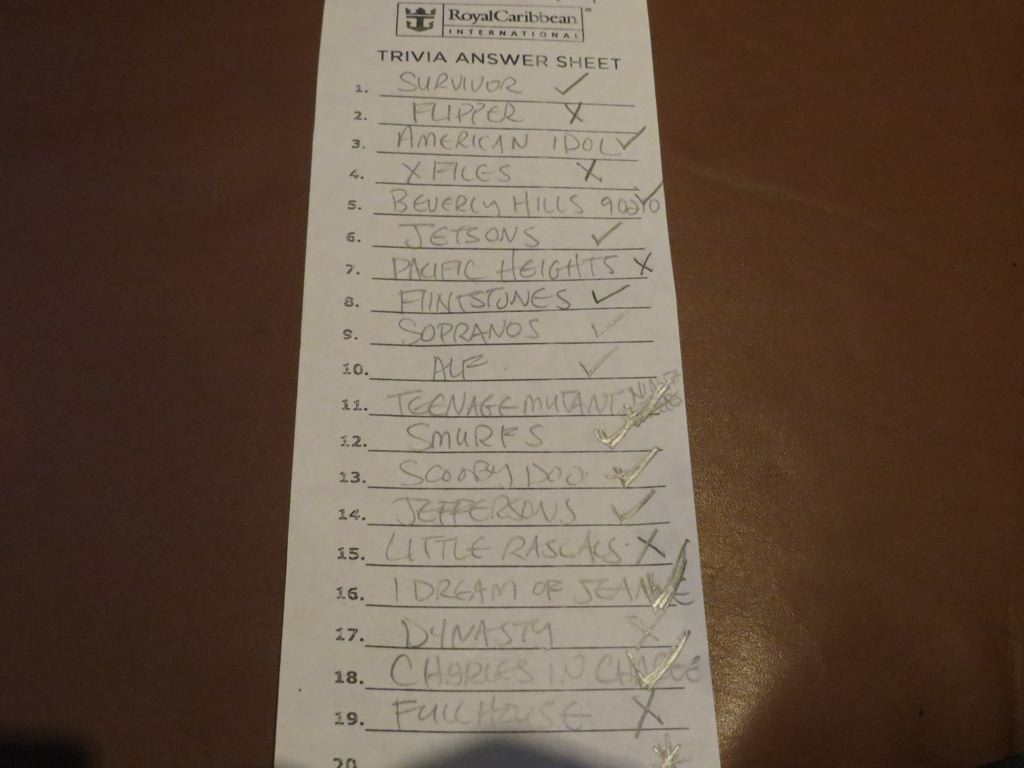 RoyalCaribbean®
INTERNATIONAL
TRIVIA ANSWER SHEET
1. SURVIVOR ✓
2. FLIPPER X
3. AMERICAN IDOL ✓
4. X FILES X
5. BEVERLY HILLS 90210 ✓
6. JETSONS ✓
7. PACIFIC HEIGHTS X
8. FLINTSTONES ✓
9. SOPRANOS ✓
10. ALF ✓
11. TEENAGE MUTANT NINJA
12. SMURFS ✓
13. SCOOBY DOO ✓
14. JEFFERSONS ✓
15. LITTLE RASCALS X
16. I DREAM OF JEANNIE ✓
17. DYNASTY X
18. CHARLES IN CHARGE ✓
19. FULL HOUSE X
20